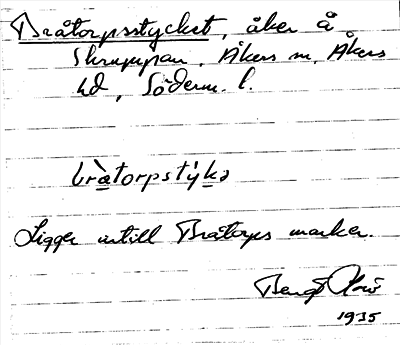 Bråtorpsstycket, åker å
Skrumpan, Åkers sn, Åkers
hd, Söderm. l.
bråtorpstyka
Ligger intill Bråtorps marker.
Bengt
1935